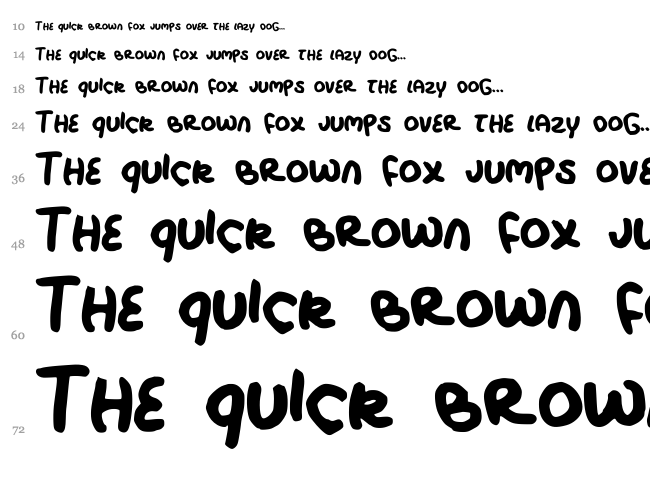 10 THE quick BROWN FOX JUMPS OVER THE LAZY DOG...
14 THE quick BROWN FOX JUMPS OVER THE LAZY DOG...
18 THE quick BROWN FOX JUMPS OVER THE LAZY DOG...
24 THE quick BROWN FOX JUMPS OVER THE LAZY DOG..
36 THE quick BROWN FOX JUMPS OVE
48 THE quick BROWN FOX JU
60 THE quick BROWN F
72 THE quick BROW